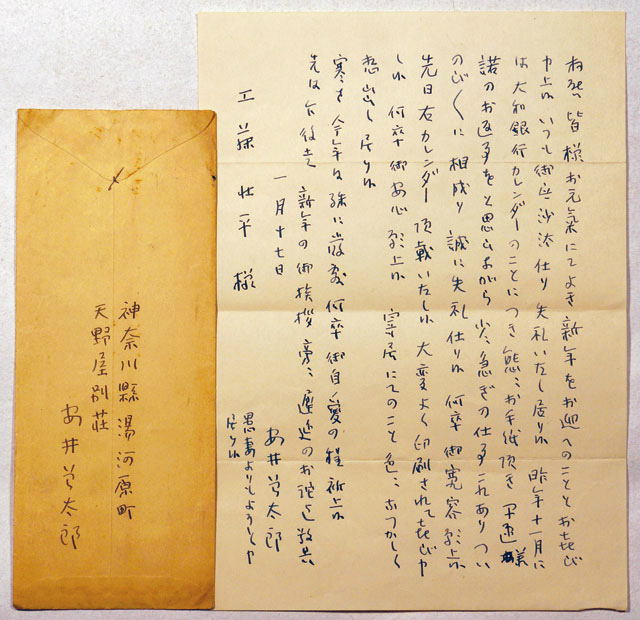 皆様お元気にてよき新年をお迎へのことゝお喜び
申上候 いつも御無沙汰仕り 失礼いたし居り候 昨年十一月に
は大和銀行カレンダーのことにつき 態々お手紙頂き 早速
諾のお返事をと思ひながら 少々急ぎの仕事これあり つい
のび〱に相成り 誠に失礼仕り候 何卒御寛容願上候
先日右カレンダー頂戴いたし候 大変よく印刷されて喜び申
し候 何卒御安心願上候 寓居にてのこと色々おなつかしく
想出し居り候
寒さ今年は殊に厳敷 何卒御自愛の程祈上候
先は 新年の御挨拶旁々 遅延のお詫迄 敬具
一月十七日 安井曽太郎
工藤壮平様
愚妻よりもよろしくと申
居り候
神奈川縣湯河原町
天野屋別荘
安井曽太郎